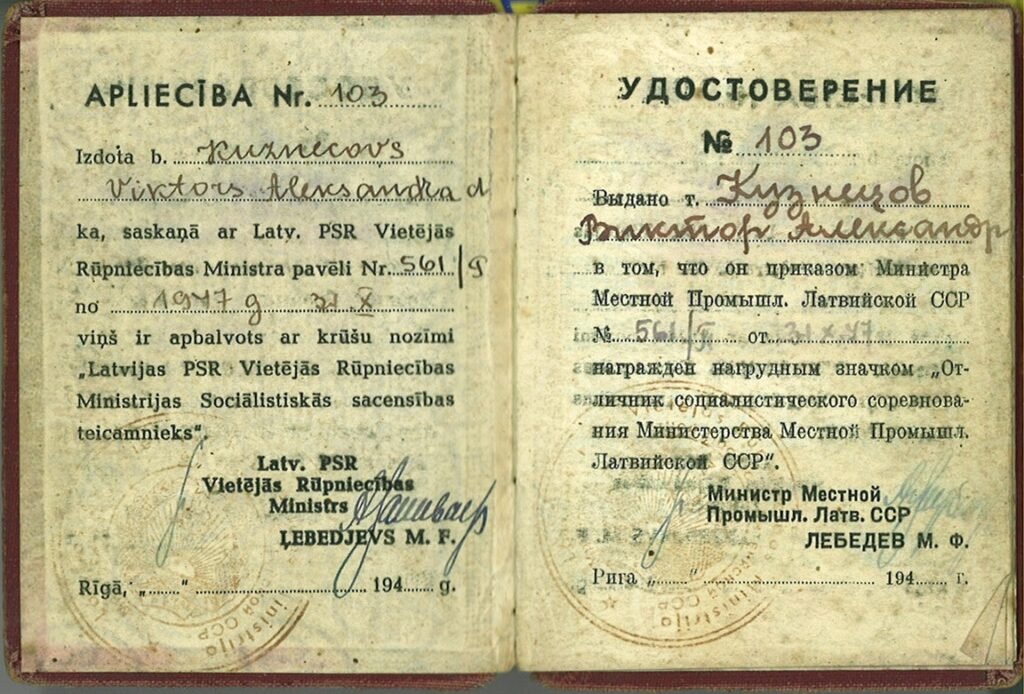 APLIECĪBA Nr. 103
Izdota b. Kuzņecovs
Viktors Aleksandra d
ka, saskaņā ar Latv. PSR Vietējās
Rūpniecības Ministra pavēli Nr. 561/
no 1947 g 31 X
viņš ir apbalvots ar krūšu nozīmi
„Latvijas PSR Vietējās Rūpniecības
Ministrijas Sociālistiskās sacensības
teicamnieks“.
Latv. PSR
Vietējās Rūpniecības
Ministrs
ĻEBEDJEVS M. F.
Rīgā, „ “ 194 g.
УДОСТОВЕРЕНИЕ
№ 103
Выдано т. Кузнецов
Виктор Александр
в том, что он приказом Министра
Местной Промышл. Латвийской ССР
№ 561/ от 31 X 47
награжден нагрудным значком „От-
личник социалистического соревнова-
ния Министерства Местной Промышл.
Латвийской ССР“.
Министр Местной
Промышл. Латв. ССР
ЛЕБЕДЕВ М. Ф.
Рига „ “ 194 г.